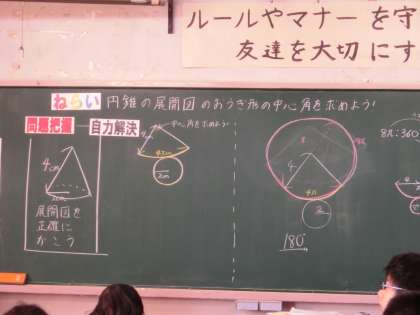 ルールやマナーを守
友達を大切にす
ねらい 円錐の展開図のおうぎ形の中心角を求めよう!
問題把握 自力解決
4cm
展開図を
正確に
かこう
中心角を求めよう!
2cm
4
4π
2
180°
8π:360